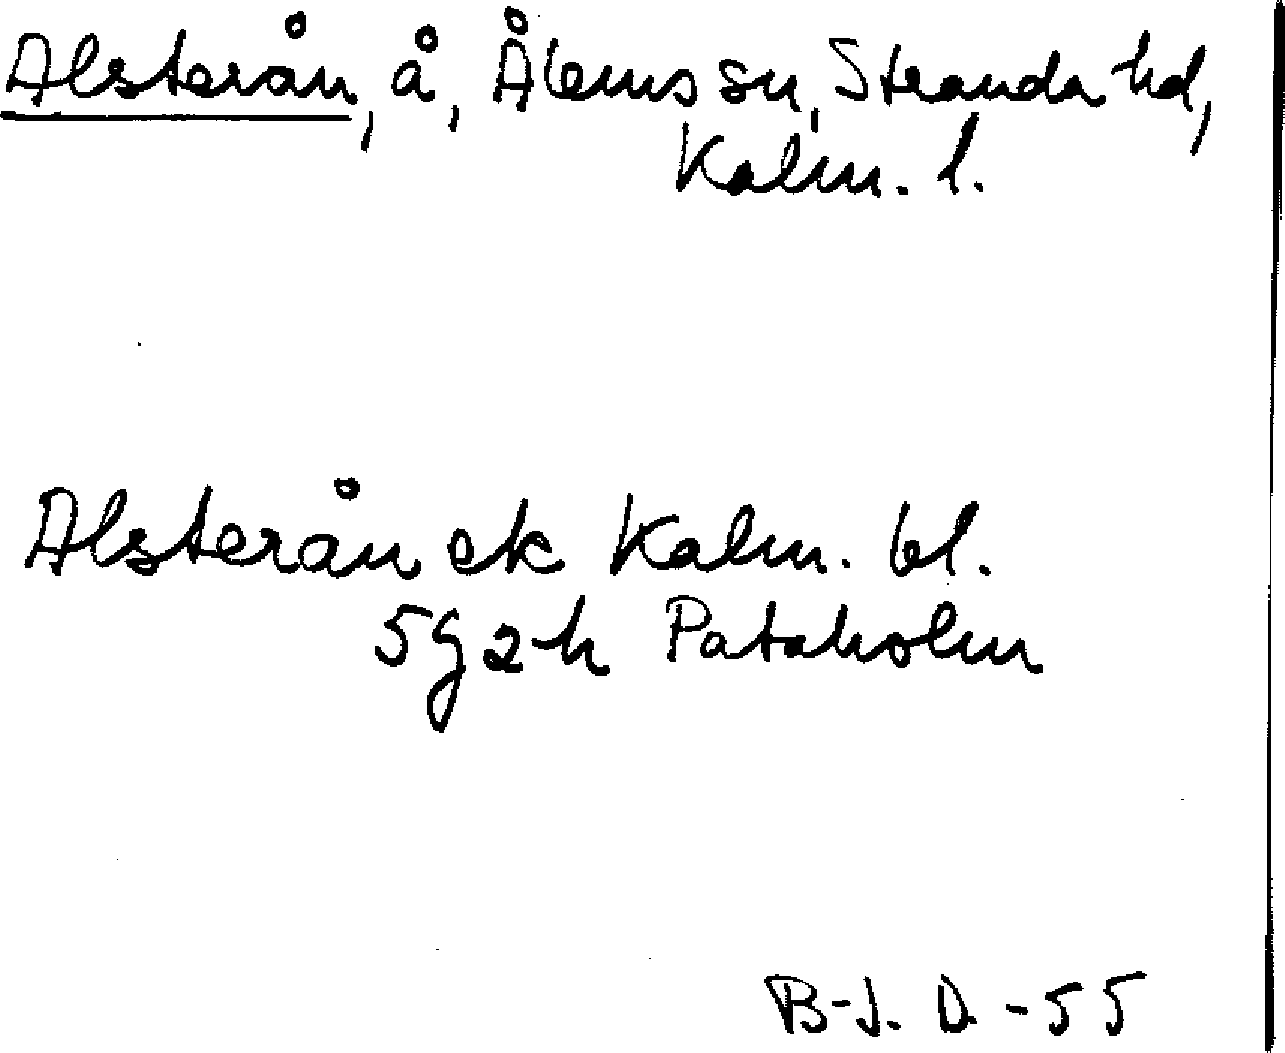 Alsterån, å, Ålems sn, Stranda hd,
Kalm. l.
Alsterån ek Kalm. bl.
5g2h Pataholm
B-J. D. -55